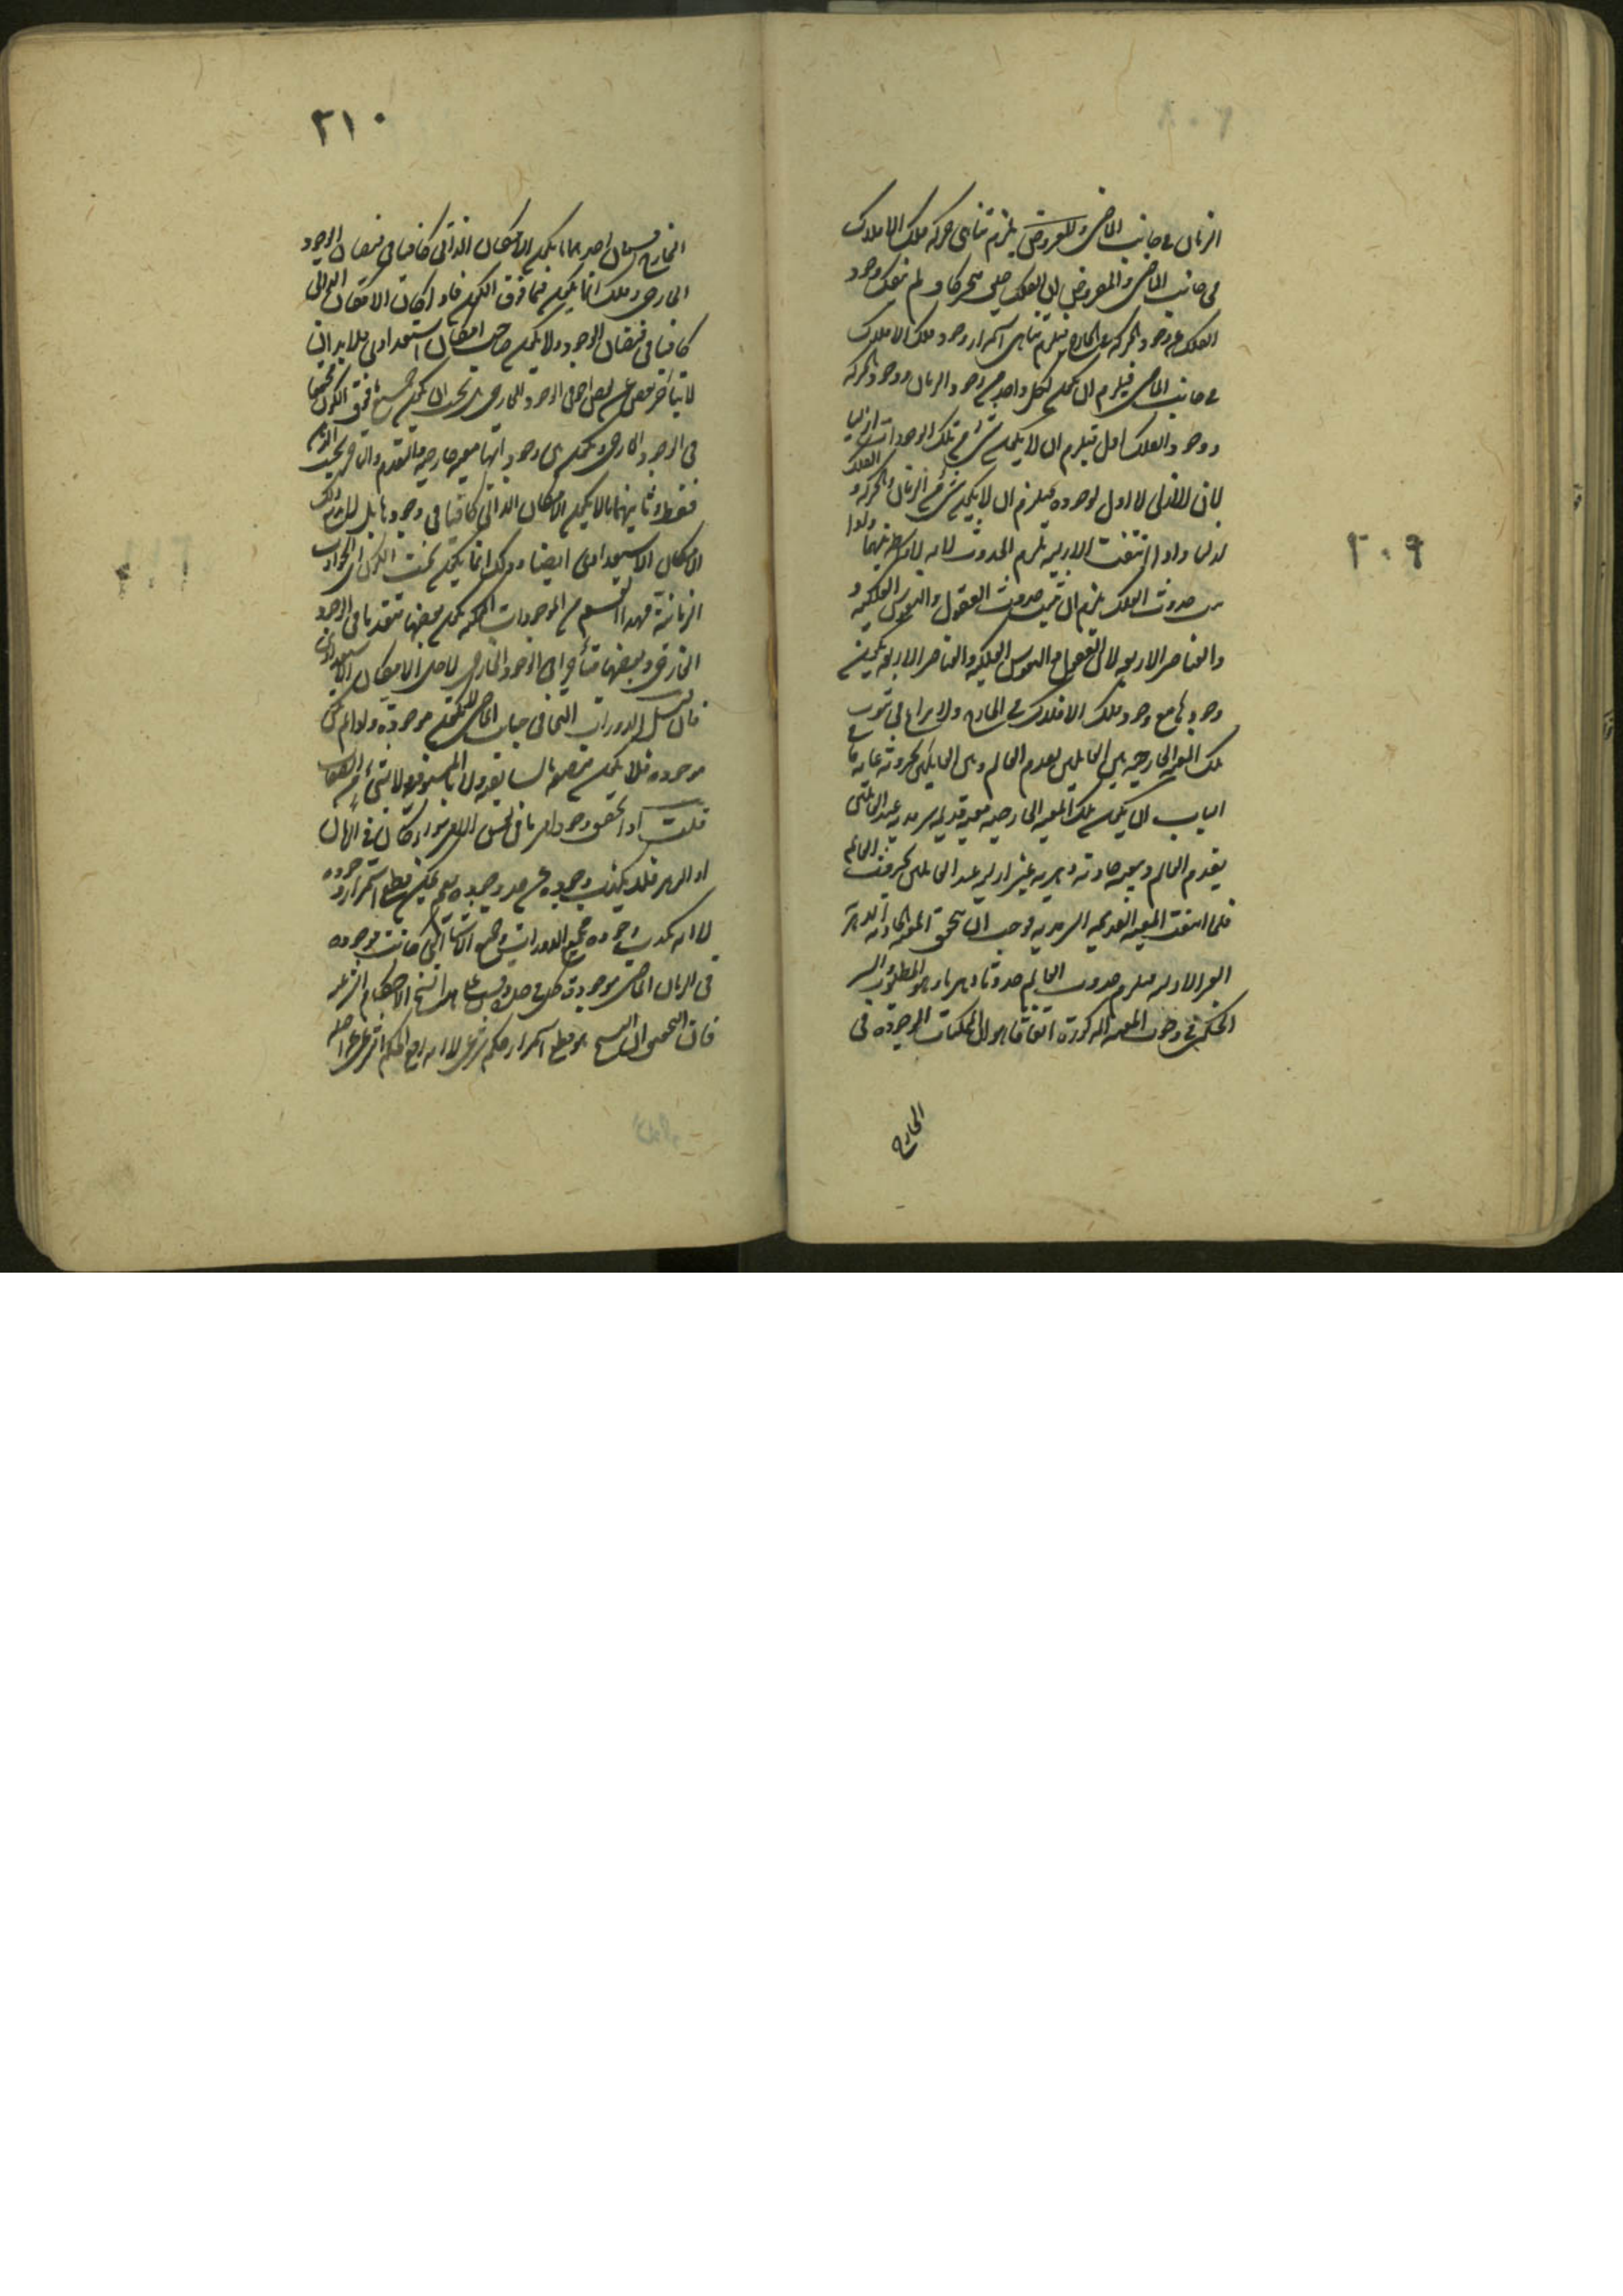 ٢٠٩
الزمان في جانب الماضي والمفروض يلزم تناهي حركة تلك الافلاك
في جانب الماضي والمفروض ان الفلك متحركا ولم ينفك وجود
الفلك عن وجود الحركة في الخارج فيلزم تناهي استمرار وجود تلك الافلاك
في جانب الماضي فيلزم ان يكون لكل واحد من وجود الزمان ووجود الحركة
ووجود الفلك اول فيلزم ان لا يكون شيء من تلك الوجودات ازليا
لان الازلي لا اول لوجوده فيلزم ان لا يكون شيء من الزمان والحركة و الفلك
ازليا واذا انتفت الازلية يلزم الحدوث لانه لا واسطة بينهما واذا
حدوث الفلك يلزم ان حدوث العقول والنفوس الفلكية و
والعناصر الاربعة لان العقول والنفوس الفلكية والعناصر الاربعة يكون
وجودها مع وجود تلك الافلاك في الخارج ولا نزاع في ثبوت
تلك المعية الخارجية بين القائلين بقدم العالم وبين القائلين بحدوثه غاية ما في
الباب ان يكون تلك المعية الخارجية معية قديمة سرمدية عند القائلين
بقدم العالم ومعية حادثة دهرية غير ازلية عند القائلين بحدوث العالم
فلما انتفت المعية القديمة السرمدية وجب ان تتحقق المعية الحادثة الدهرية
الغير الازلية فيلزم حدوث العالم حدوثا دهريا وهو المطلوب والسر
الحكمي في وجوب المعية المذكورة اتفاقا هو ان الممكنات الموجودة في
الخارج
٢١٠
الخارج قسمان احدهما ما يكون الامكان الذاتي كافيا في فيضان الوجود
الخارجي وذلك انما يكون فيما فوق الكون فاذا كان الامكان الذاتي
كافيا في فيضان الوجود ولا يكون صاحب امكان استعدادي فلا بد ان
لا يتأخر بعض عن بعض اخر في الوجود الخارجي بحيث ان يكون جميع ما فوق الكون مجتمعا
في الوجود الخارجي ويكون بين وجوداتها معية خارجية والتقدم والتأخر بحسب الذات
فقط وثانيهما ما لا يكون الامكان الذاتي كافيا في وجودها بل لا بد لذلك
الامكان الاستعدادي ايضا وذلك انما يكون تحت الكون اي الحوادث
الزمانية فهذا القسم من الموجودات الممكنة يكون بعضها متقدما في الوجود
الخارجي وبعضها متأخرا في الوجود الخارجي لاجل الامكان الاستعدادي
فان قيل الدورات التي في جانب الماضي موجودة ولو لم تكن
موجودة فلا يكون متصفة بالسابقية ولا بالمسبوقية ولا بشيء من الصفات
قلت اذا تحقق وجود امر ما في نفس الامر سواء كان في الزمان
او الدهر فلا يكذب وجوده عن حد وجوده نعم يمكن قطع استمرار وجوده
لا انه يكذب وجوده فجميع الدورات وجميع الاشياء التي كانت موجودة
في الزمان الماضي موجودة كل في حده وقس على هذا نسخ الاحكام الشرعية
فان التحقيق ان النسخ هو قطع استمرار حكم شرعي لا انه رفع الحكم الشرعي عن اصله